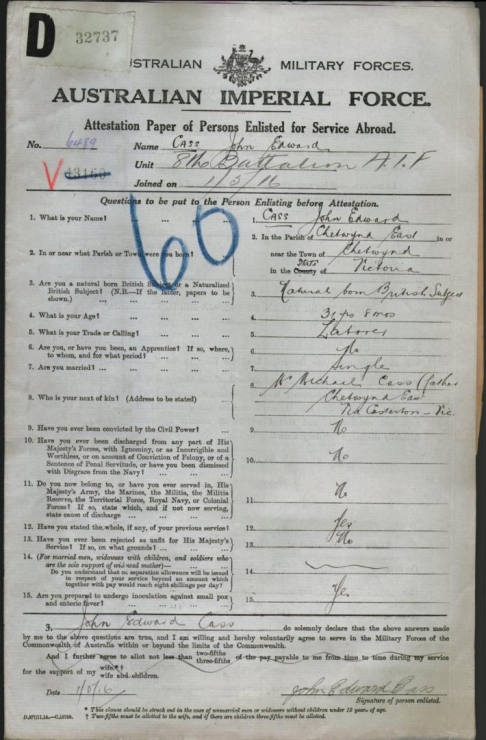 D
32737
AUSTRALIAN MILITARY FORCES.
AUSTRALIAN IMPERIAL FORCE.
Attestation Paper of Persons Enlisted for Service Abroad.
No. 6489 Name CASS John Edward
Unit 8th Battalion A.I.F
V
Joined on 1/5/16
60
Questions to be put to the Person Enlisting before Attestation.
1. What is your Name? ... ... ... 1. CASS John Edward
2. In or near what Parish or Town were you born? 2. In the Parish of Chetwynd East in or
near the Town of Chetwynd
in the County of State Victoria
3. Are you a natural born British Subject or a Naturalized
British Subject? (N.B.—If the latter, papers to be
shown.) ... ... ... 3. Natural born British Subject
4. What is your Age? ... ... ... 4. 8 mos
5. What is your Trade or Calling? ... ... 5. Laborer
6. Are you, or have you been, an Apprentice? If so, where,
to whom, and for what period? ... ... 6. No
7. Are you married? ... ... ... 7. Single
8. Who is your next of kin? (Address to be stated) 8. Mr Michael Cass (father
Chetwynd East
Via Casterton - Vic.
9. Have you ever been convicted by the Civil Power? ... 9. No
10. Have you ever been discharged from any part of His
Majesty's Forces, with Ignominy, or as Incorrigible and
Worthless, or on account of Conviction of Felony, or of a
Sentence of Penal Servitude, or have you been dismissed
with Disgrace from the Navy? ... ... 10. No
11. Do you now belong to, or have you ever served in, His
Majesty's Army, the Marines, the Militia, the Militia
Reserve, the Territorial Force, Royal Navy, or Colonial
Forces? If so, state which, and if not now serving,
state cause of discharge ... ... 11. No
12. Have you stated the whole, if any, of your previous service? 12. Yes
13. Have you ever been rejected as unfit for His Majesty's
Service? If so, on what grounds? ... ... 13. No
14. (For married men, widowers with children, and soldiers who
are the sole support of widowed mother)—
Do you understand that no separation allowance will be issued
in respect of your service beyond an amount which
together with pay would reach eight shillings per day? 14.
15. Are you prepared to undergo inoculation against small pox
and enteric fever? ... ... ... 15. Yes
I, John Edward Cass do solemnly declare that the above answers made
by me to the above questions are true, and I am willing and hereby voluntarily agree to serve in the Military Forces of the
Commonwealth of Australia within or beyond the limits of the Commonwealth.
And I further agree to allot not less than two-fifths three-fifths of the pay payable to me from time to time during my service
for the support of my wife*† wife and children.
Date 1/5/16 John Edward Cass
Signature of person enlisted.
* This clause should be struck out in the case of unmarried men or widowers without children under 18 years of age.
† Two-fifths must be allotted to the wife, and if there are children three-fifths must be allotted.